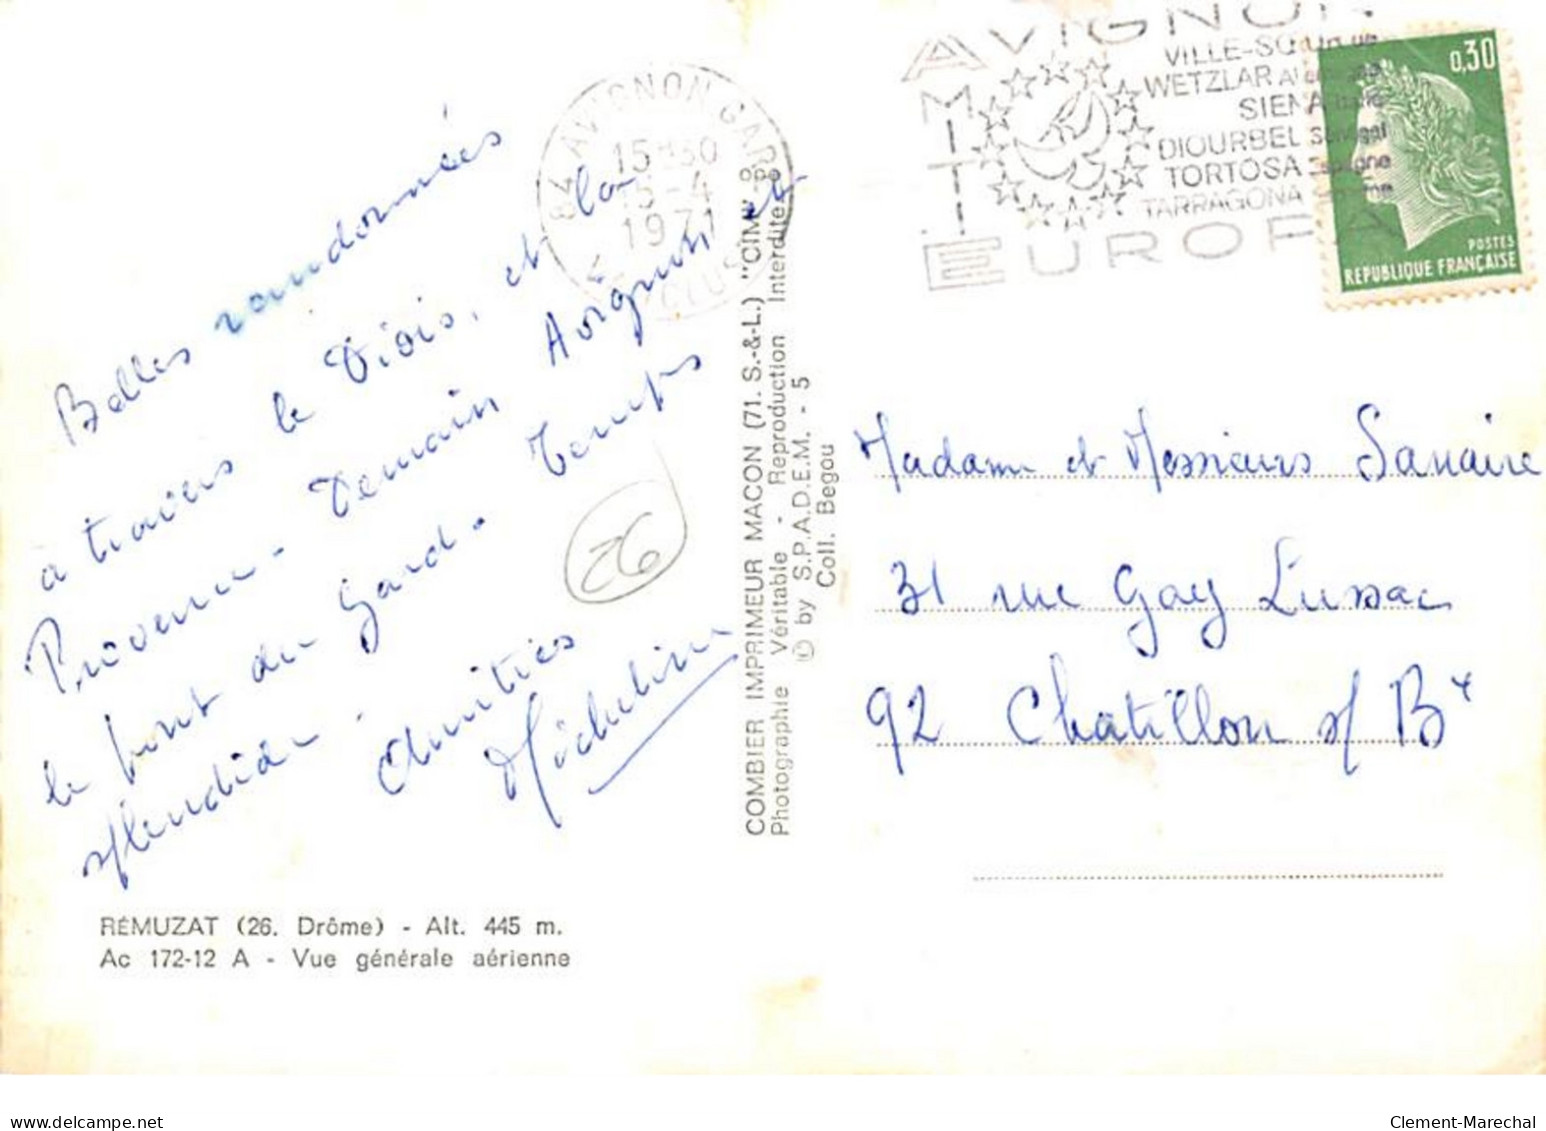 Belles randonnées
à travers le Diois, et la
Provence - Demain Avignon et
le pont du Gard - Temps
splendide.
Amitiés
26
RÉMUZAT (26. Drôme) - Alt. 445 m.
Ac 172-12 A - Vue générale aérienne
84 AVIGNON GARE
15H30
15-4
1971
VAUCLUSE
COMBIER IMPRIMEUR MACON (71. S.-&-L.) "CIM"
Photographie Véritable - Reproduction Interdite
© by S.P.A.D.E.M. - 5
Coll. Begou
AVIGNON
AMITIE
VILLE-SŒUR de
WETZLAR Allemagne
SIENA Italie
DIOURBEL Sénégal
TORTOSA Espagne
TARRAGONA Espagne
EUROPA
0,30
POSTES
REPUBLIQUE FRANÇAISE
Madame et Messieurs Sanaire
31 rue Gay Lussac
92 Chatillon s/ Bx
Clement-Marechal